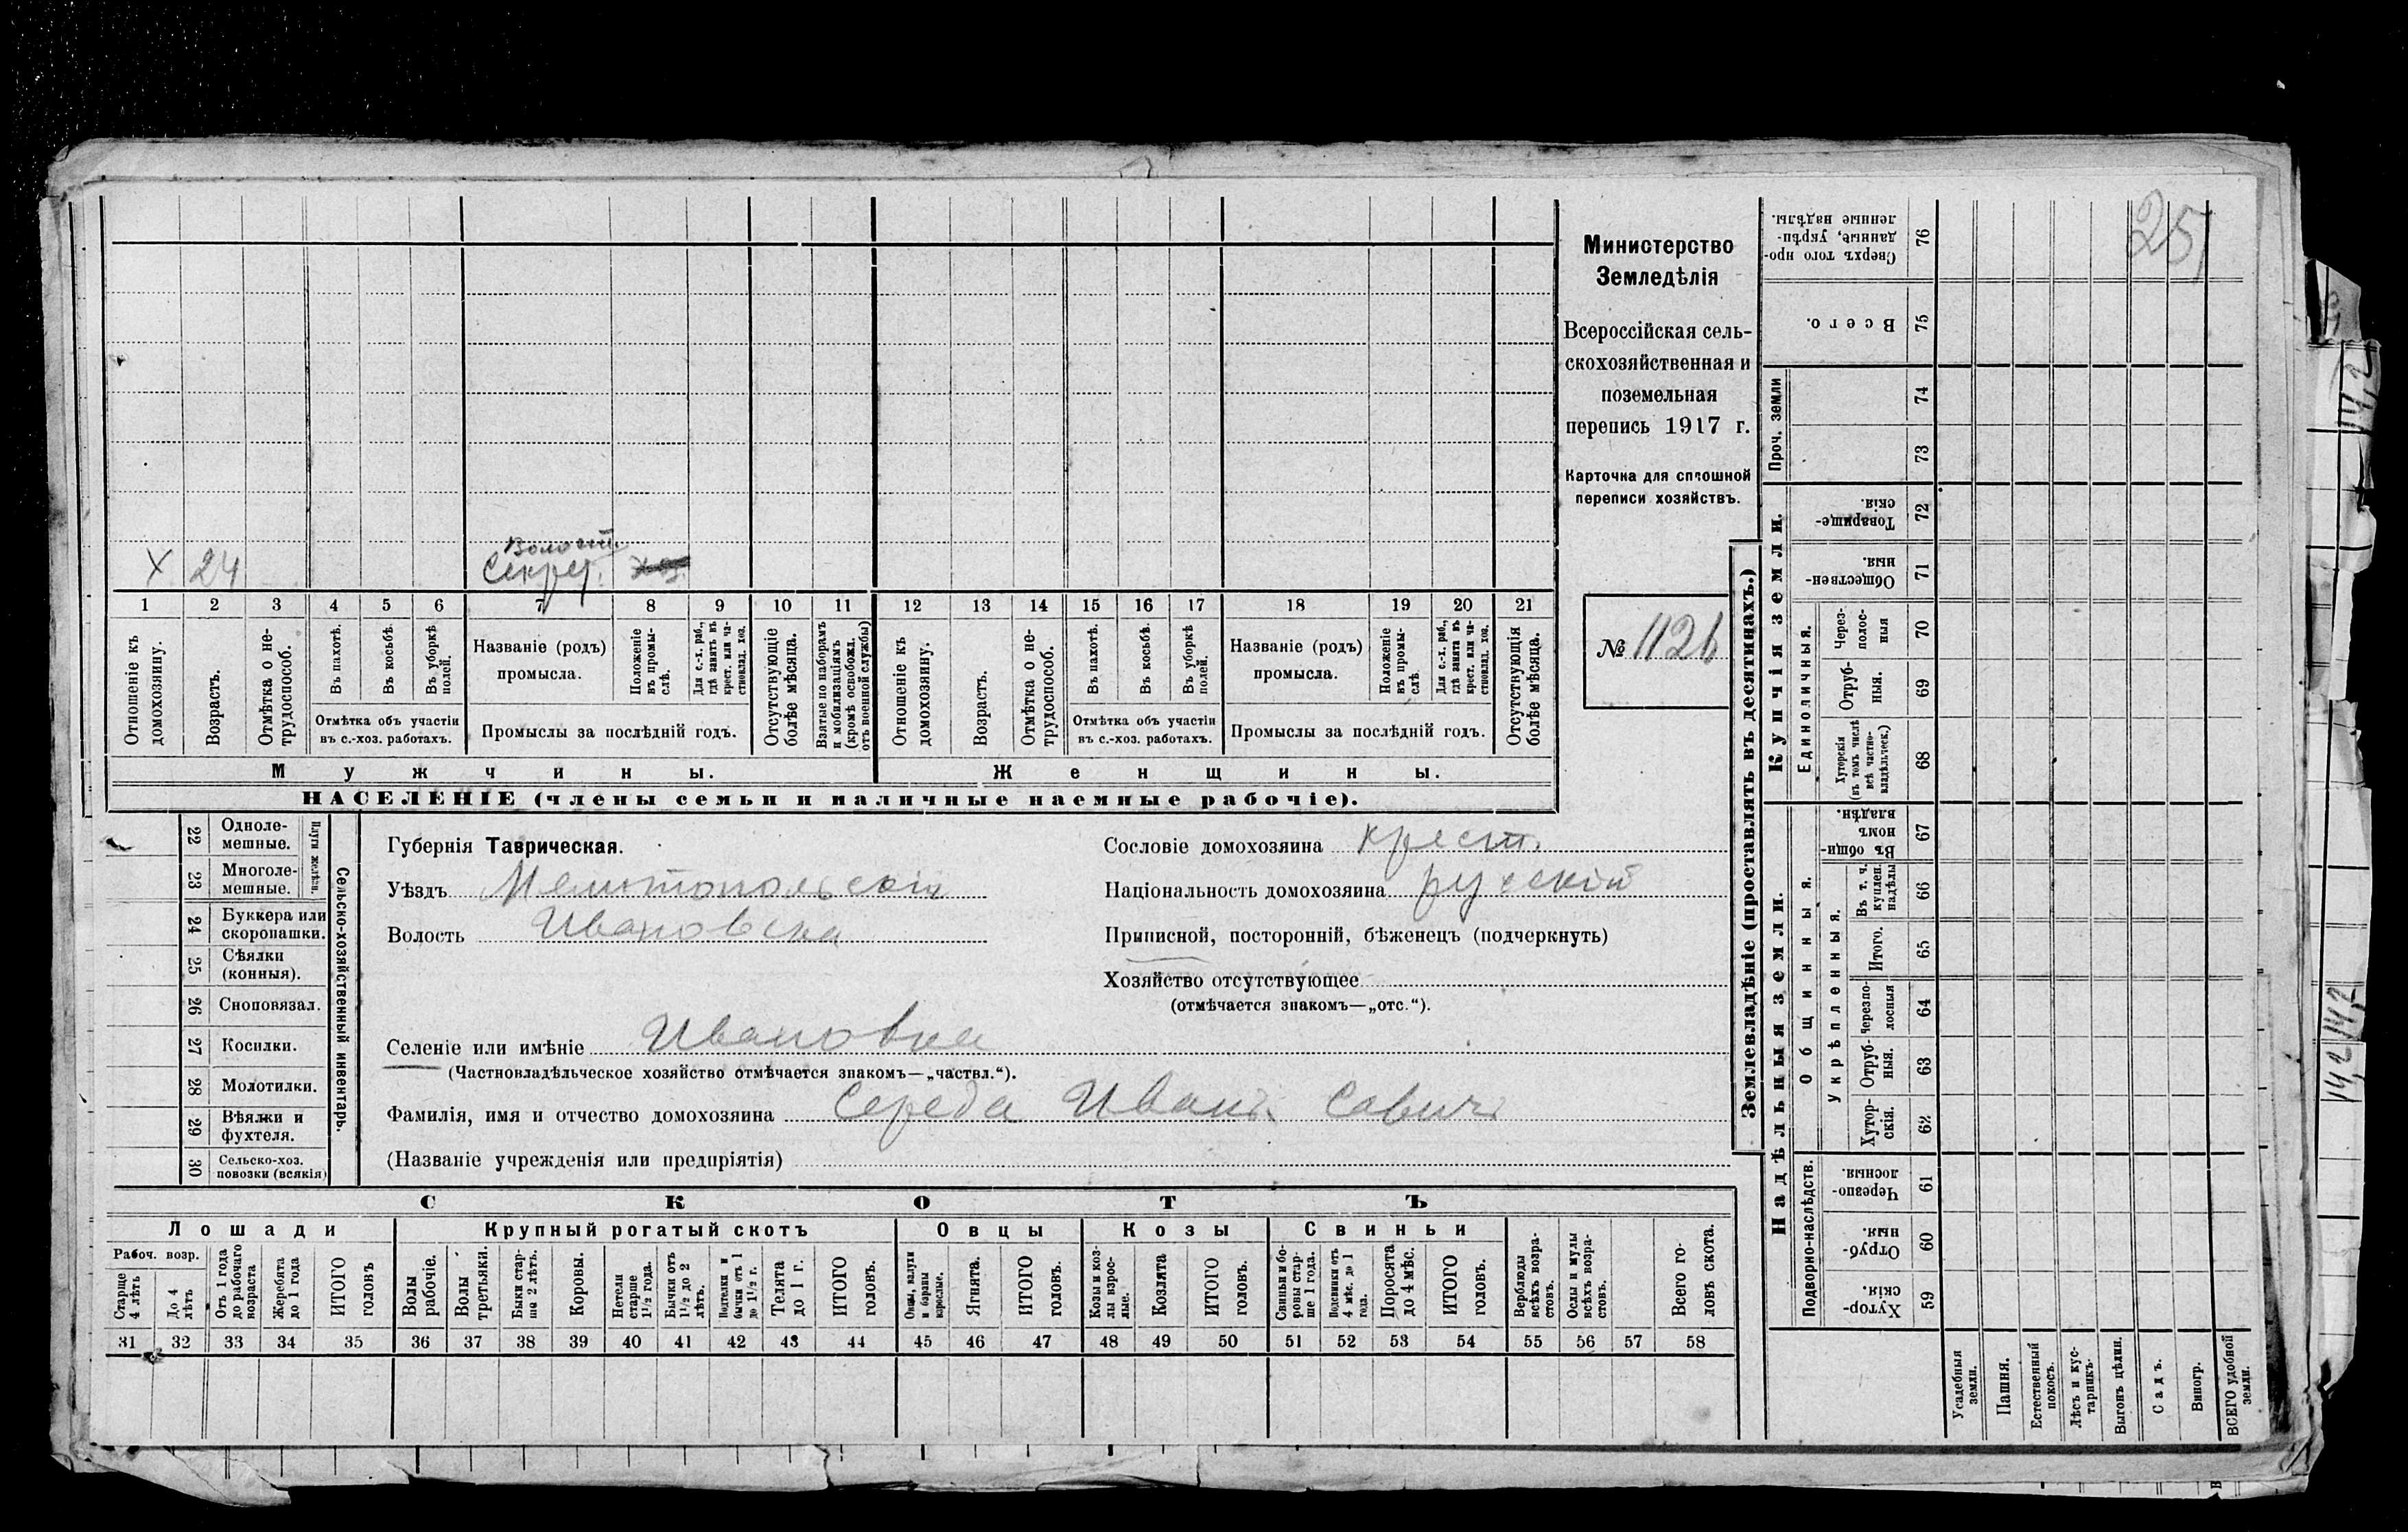 25
Министерство
Земледѣлія
Всероссійская сель-
скохозяйственная и
поземельная
перепись 1917 г.
Карточка для сплошной
переписи хозяйствъ.
№ 1126
Х 24 Волост. Секрет.
1 2 3 4 5 6 7 8 9 10 11 12 13 14 15 16 17 18 19 20 21
Отношеніе къ домохозяину.
Возрастъ.
Отмѣтка о не-трудоспособ.
Въ пахотѣ.
Въ косьбѣ.
Въ уборкѣ полей.
Отмѣтка объ участіи
въ с.-хоз. работахъ.
Названіе (родъ)
промысла.
Положеніе въ промы-слѣ.
Для с.-х. раб., гдѣ занятъ въ крест. или ча-стновлад. хоз.
Промыслы за послѣдній годъ.
Отсутствующіе болѣе мѣсяца.
Взятые по наборамъ и мобилизаціямъ (кромѣ освобожд. отъ военной службы)
Отношеніе къ домохозяину.
Возрастъ.
Отмѣтка о не-трудоспособ.
Въ пахотѣ.
Въ косьбѣ.
Въ уборкѣ полей.
Отмѣтка объ участіи
въ с.-хоз. работахъ.
Названіе (родъ)
промысла.
Положеніе въ промы-слѣ.
Для с.-х. раб., гдѣ занята въ крест. или ча-стновлад. хоз.
Промыслы за послѣдній годъ.
Отсутствующія болѣе мѣсяца.
Мужчины.
Женщины.
НАСЕЛЕНІЕ (члены семьи и наличные наемные рабочіе).
22 Одноле-мешные.
23 Многоле-мешные.
Плуги желѣзн.
24 Буккера или скоропашки.
25 Сѣялки (конныя).
26 Сноповязал.
27 Косилки.
28 Молотилки.
29 Вѣялки и фухтеля.
30 Сельско-хоз. повозки (всякія)
Сельско-хозяйственный инвентарь.
Губернія Таврическая.
Уѣздъ Мелитопольскій
Волость Ивановска
Сословіе домохозяина крест.
Національность домохозяина русскій
Приписной, посторонній, бѣженецъ (подчеркнуть)
Хозяйство отсутствующее
(отмѣчается знакомъ—„отс.“).
Селеніе или имѣніе Ивановка
(Частновладѣльческое хозяйство отмѣчается знакомъ—„частвл.“).
Фамилія, имя и отчество домохозяина Середа Иванъ Савичъ
(Названіе учрежденія или предпріятія)
СКОТЪ
Лошади
Крупный рогатый скотъ
Овцы
Козы
Свиньи
Рабоч. возр.
Старше 4 лѣтъ
До 4 лѣтъ
Отъ 1 года до рабочаго возраста
Жеребята до 1 года
ИТОГО головъ
Волы рабочіе.
Волы третьяки.
Быки стар-ше 2 лѣтъ.
Коровы.
Нетели старше 1½ года.
Бычки отъ 1½ до 2 лѣтъ.
Подтелки и бычки отъ 1 до 1½ г.
Телята до 1 г.
ИТОГО головъ.
Овцы, валухи и бараны взрослые.
Ягнята.
ИТОГО головъ.
Козы и коз-лы взрос-лые.
Козлята
ИТОГО головъ.
Свиньи и бо-ровы стар-ше 1 года.
Подсвинки отъ 4 мѣс. до 1 года.
Поросята до 4 мѣс.
ИТОГО головъ.
Верблюды всѣхъ возра-стовъ.
Ослы и мулы всѣхъ возра-стовъ.
Всего го-ловъ скота.
31 32 33 34 35 36 37 38 39 40 41 42 43 44 45 46 47 48 49 50 51 52 53 54 55 56 57 58
Землевладѣніе (проставлять въ десятинахъ.)
Купчія земли.
Надѣльныя земли.
Сверхъ того про-данные, укрѣп-ленные надѣлы. 76
Всего. 75
Проч. земли 74
73
Товарище-скія. 72
Обществен-ныя. 71
Единоличныя.
Через-полос-ныя 70
Отруб-ныя. 69
Хуторскія (въ томъ числѣ всѣ частно-владѣльческ.) 68
Общинныя.
Въ общи-номъ владѣн. 67
Укрѣпленныя.
Въ т. ч. куплен. надѣлы 66
Итого. 65
Черезпо-лосныя 64
Отруб-ныя. 63
Хутор-скія. 62
Подворно-наслѣдств.
Черезпо-лосныя. 61
Отруб-ныя. 60
Хутор-скія. 59
Усадебныя земли.
Пашня.
Естественный покосъ.
Лѣсъ и кус-тарникъ.
Выгонъ цѣлин.
Садъ.
Виногр.
ВСЕГО удобной земли.